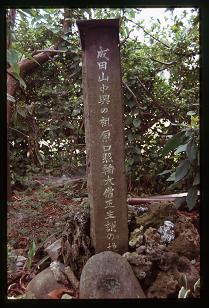 成田山中興の祖原口照輪大僧正生誕の地